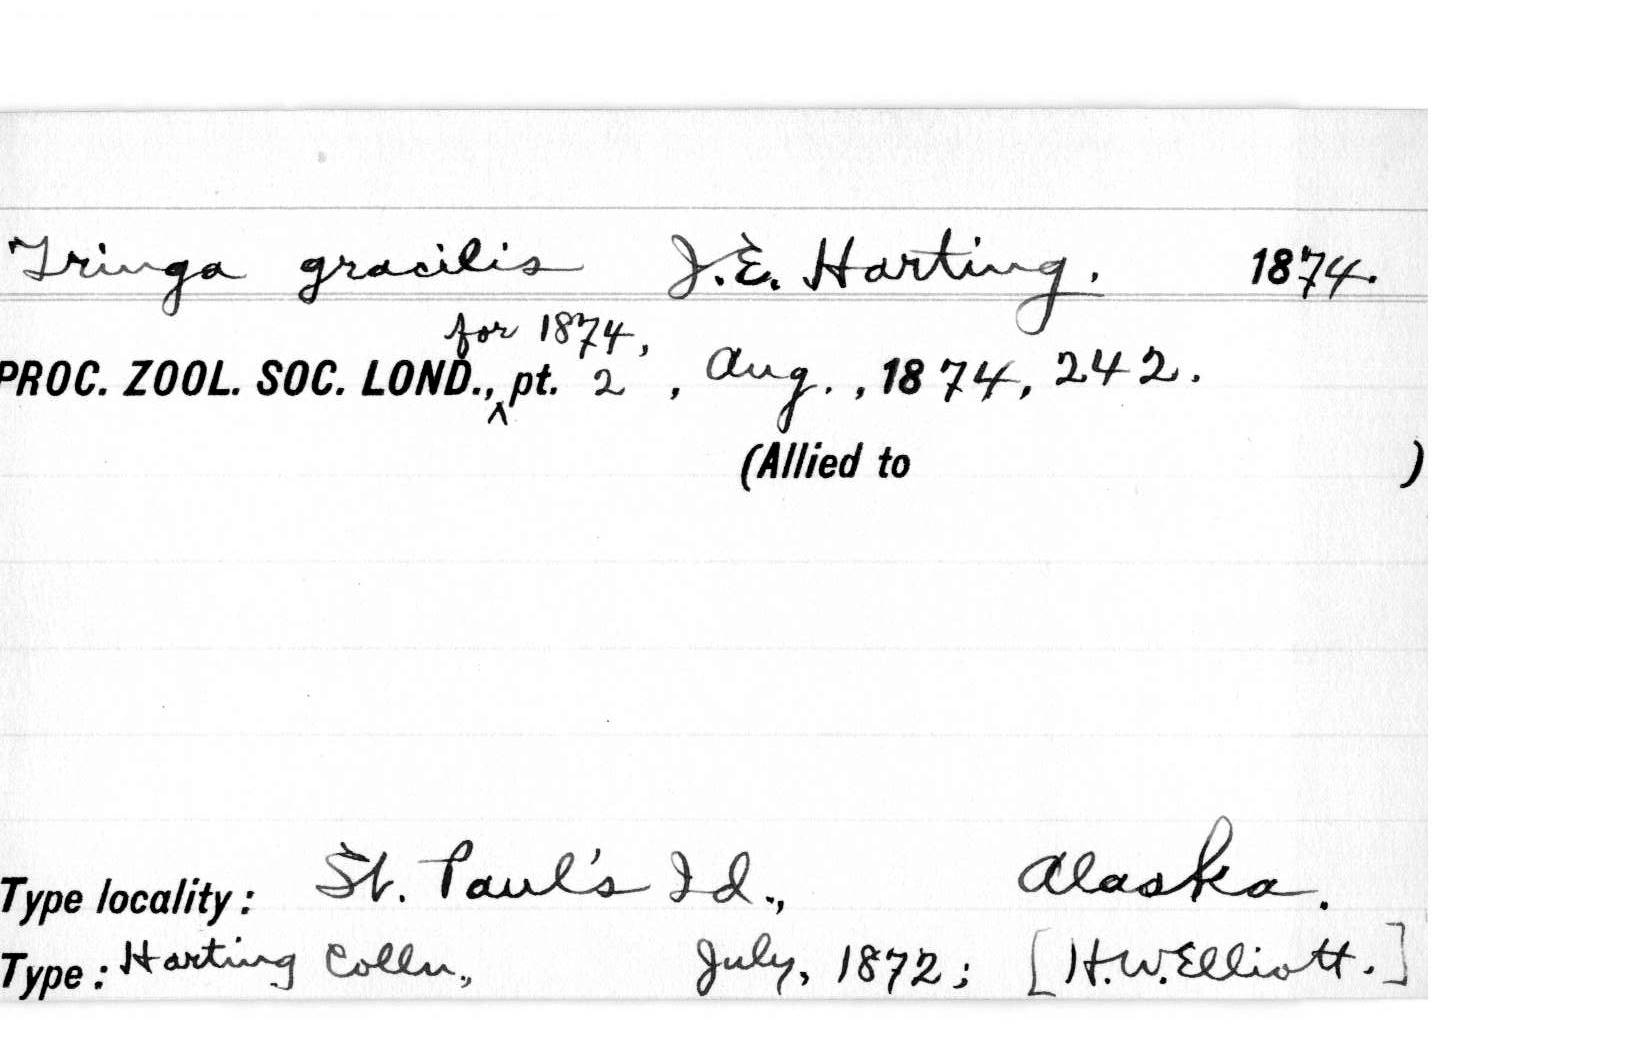 Tringa gracilis J.E. Harting. 1874.
for 1874,
PROC. ZOOL. SOC. LOND., ^ pt. 2, Aug., 1874, 242.
(Allied to )
Type locality: St. Paul's Id., Alaska.
Type: Harting Colln., July, 1872; [H.W. Elliott.]